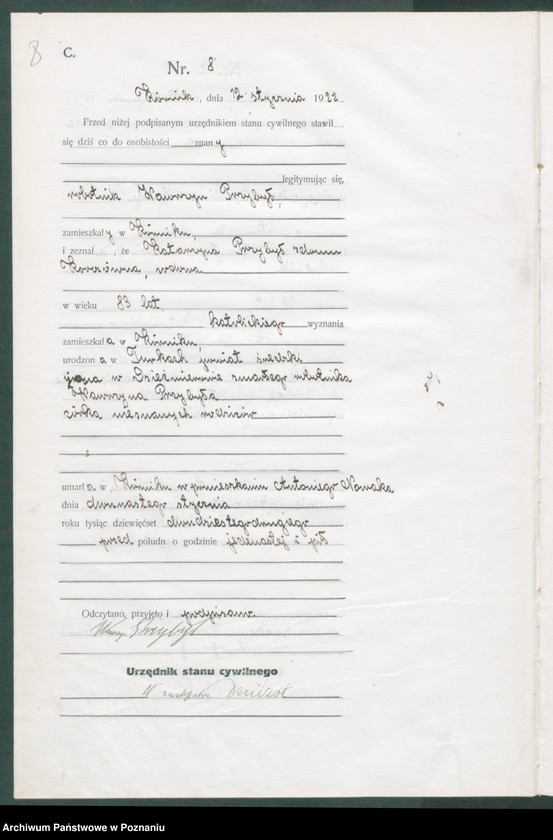 8
C.
Nr. 8
Kórnik, dnia 12 stycznia 1922
Przed niżej podpisanym urzędnikiem stanu cywilnego stawił
się dziś co do osobistości znany
legitymując się,
robotnik Wawrzyn Przybył,
zamieszkały w Kórniku,
i zeznał, że Katarzyna Przybył z domu
wdowa
w wieku 83 lat,
katolickiego wyznania
zamieszkała w Kórniku,
urodzona w powiat średzki
w zmarłego robotnika
Wawrzyna Przybyła
córka nieznanych rodziców
umarła w Kórniku w pomieszkaniu Antoniego Nowaka
dnia dwunastego stycznia
roku tysiąc dziewięćset dwudziestego drugiego
przed połudn. o godzinie jedenastej i pół
Odczytano, przyjęto i podpisano.
Wawrzyn Przybył
Urzędnik stanu cywilnego
W zastępstwie
Archiwum Państwowe w Poznaniu